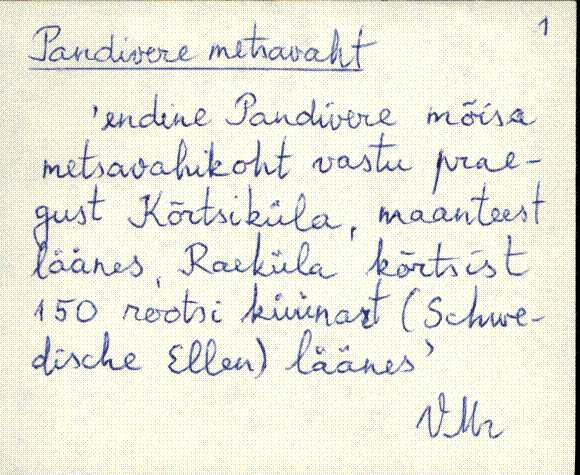 1
Pandivere metsavaht
'endine Pandivere mõisa
metsavahikoht vastu prae-
gust Kõrtsiküla, maanteest
läänes, Raeküla kõrtsist
150 rootsi küünart (Schwe-
dische Ellen) läänes'
VMr